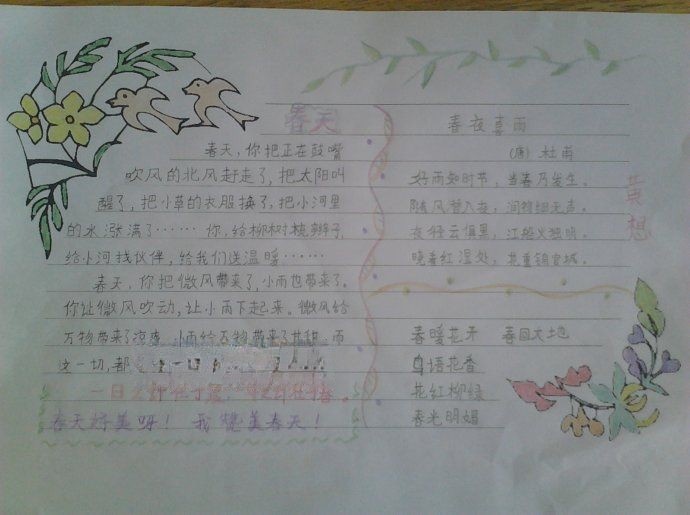 春天
春天,你把正在鼓嘴
吹风的北风赶走了,把太阳叫
醒了,把小草的衣服换了,把小河里
的水涨满了……你,给柳树梳辫子,
给小河找伙伴,给我们送温暖……
春天,你把微风带来了,小雨也带来了。
你让微风吹动,让小雨下起来。微风给
万物带来了凉爽,小雨给万物带来了甘甜,而
这一切,都
一日之计在于晨,
春天好美呀!我赞美春天!
春夜喜雨
(唐)杜甫
好雨知时节,当春乃发生。
随风潜入夜,润物细无声。
夜径云俱黑,江船火独明。
晓看红湿处,花重锦官城。
黄想
春暖花开 春回大地
鸟语花香
花红柳绿
春光明媚